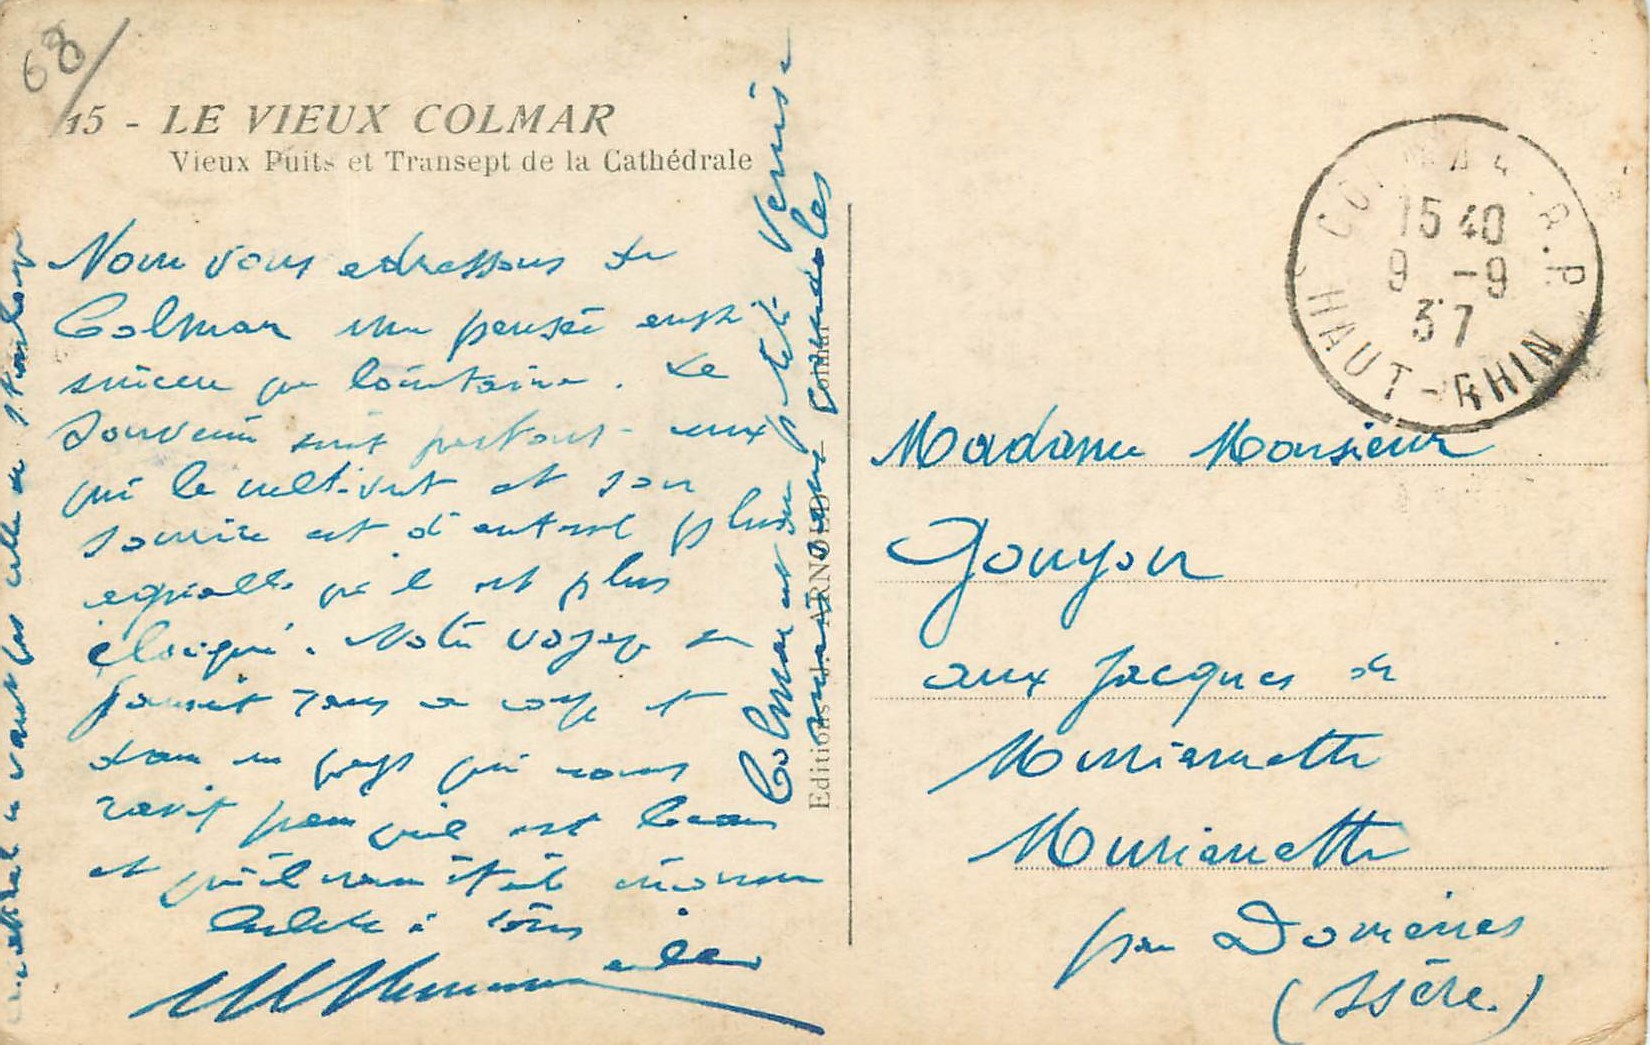 68
15 - LE VIEUX COLMAR
Vieux Puits et Transept de la Cathédrale
Nous vous adressons de
Colmar une pensée aussi
sincère que lointaine. Le
souvenir suit partout ceux
qui le cultivent et son
sourire est d'autant plus
agréable qu'il est plus
éloigné. Notre voyage se
poursuit sans à coup et
dans un pays qui nous
ravit parce qu'il est beau
et qu'il nous était inconnu
à tous
Colmar est une petite Venise
mais sans
Editions J. ARNOLD Colmar
cathédrale vaut pas celle de Strasbourg
COLMAR R.P.
15 40
9 -9
37
HAUT-RHIN
Madame Monsieur
Gouyon
aux Jacques de
Murianette
Murianette
par Domènes
(Isère.)